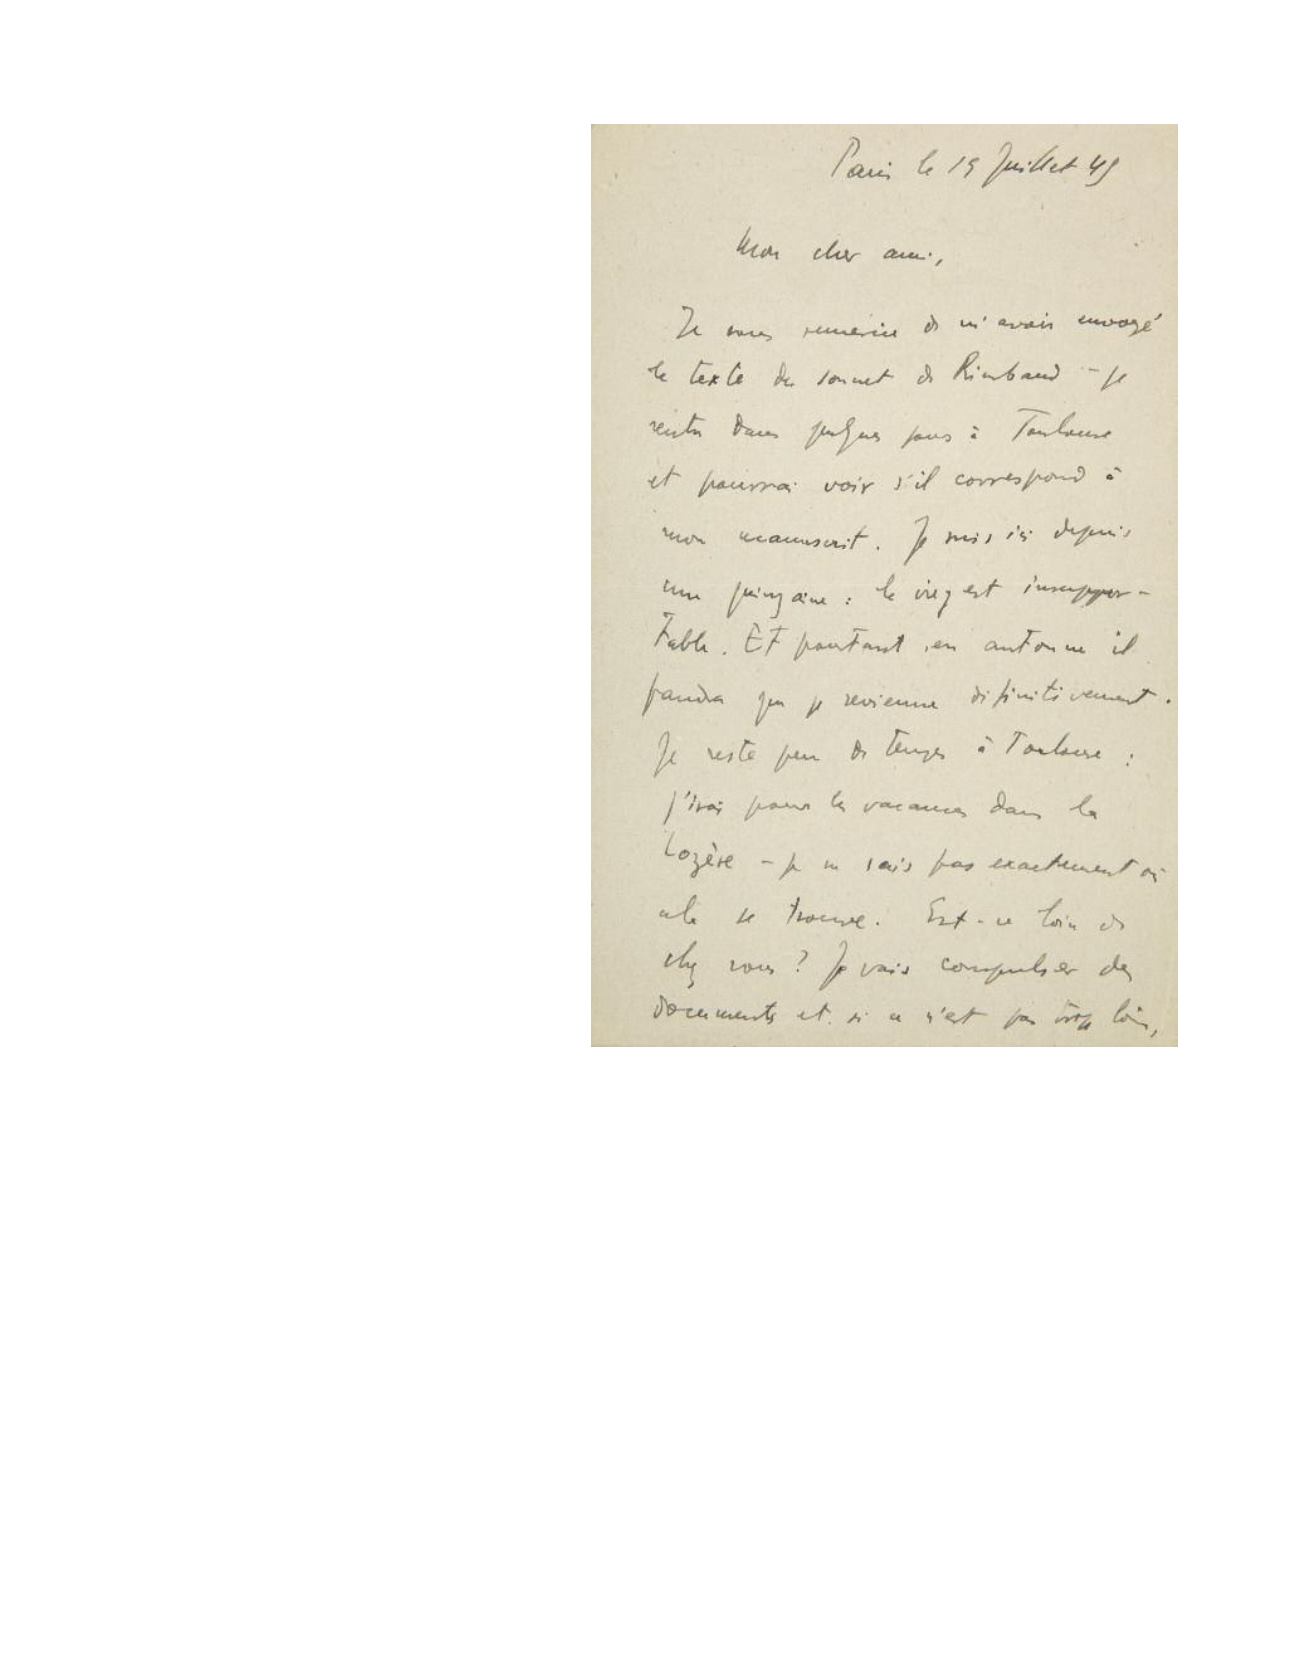 Paris le 19 Juillet 45
Mon cher ami,
Je vous remercie de m'avoir envoyé
le texte du sonnet de Rimbaud - je
rentre dans quelques jours à Toulouse
et pourrai voir s'il correspond à
mon manuscrit. Je suis ici depuis
une quinzaine : la vie y est insuppor-
table. Et pourtant, en automne il
faudra que je revienne définitivement.
Je reste peu de temps à Toulouse :
j'irai pour les vacances dans la
Lozère - je ne sais pas exactement où
cela se trouve. Est-ce loin de
chez vous ? Je vais compulser des
documents et si ce n'est pas trop loin,